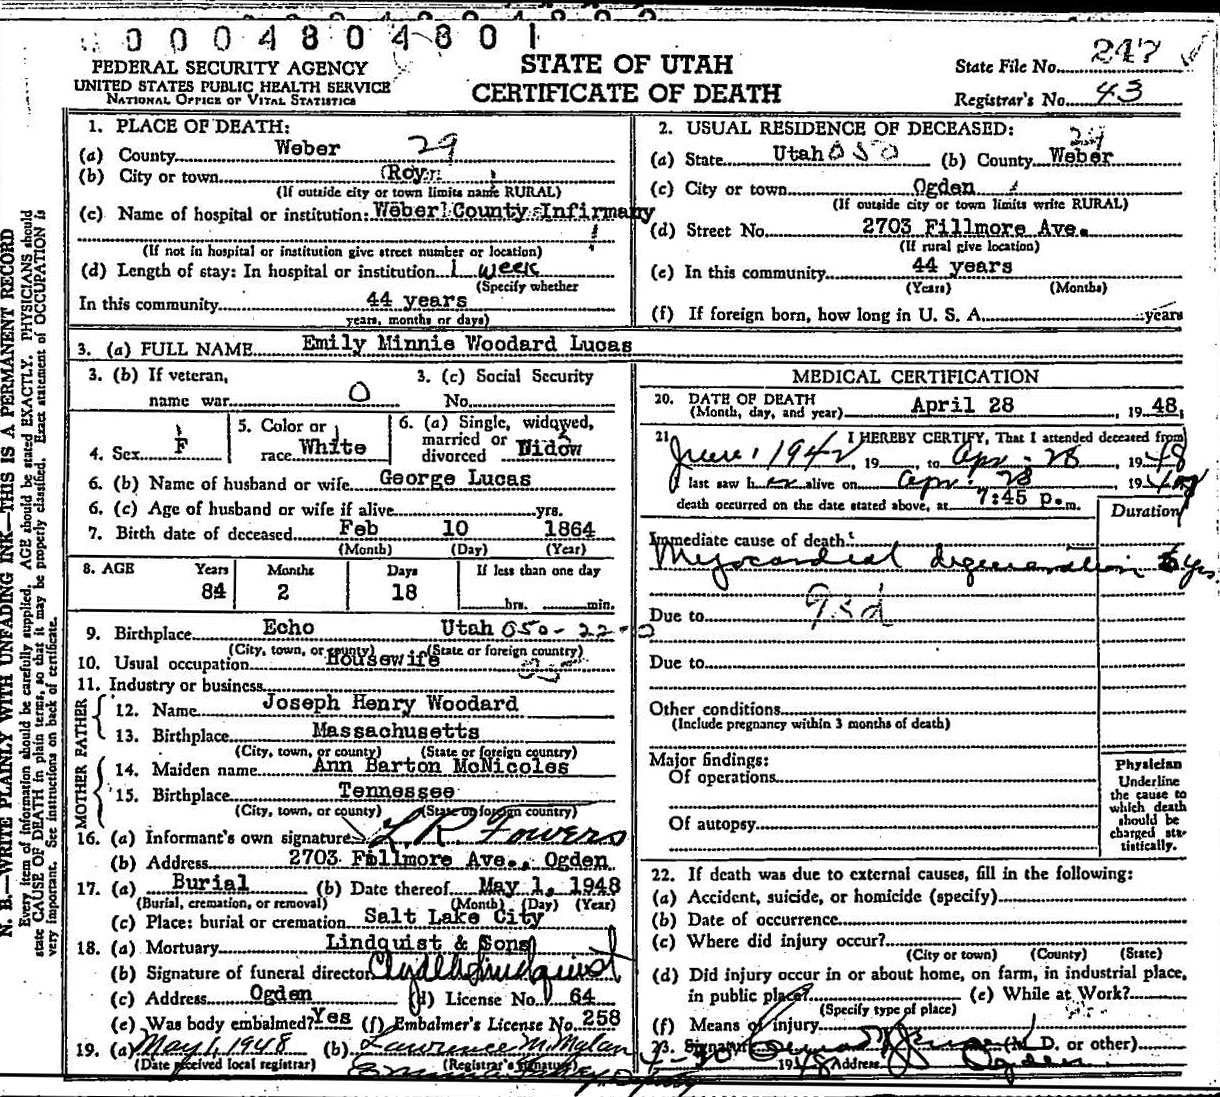 0004804801
FEDERAL SECURITY AGENCY
UNITED STATES PUBLIC HEALTH SERVICE
NATIONAL OFFICE OF VITAL STATISTICS
STATE OF UTAH
CERTIFICATE OF DEATH
State File No. 247
Registrar's No. 43
N. B.—WRITE PLAINLY WITH UNFADING INK—THIS IS A PERMANENT RECORD
Every item of information should be carefully supplied. AGE should be stated EXACTLY. PHYSICIANS should
state CAUSE OF DEATH in plain terms, so that it may be properly classified. Exact statement of OCCUPATION is
very important. See instructions on back of certificate.
1. PLACE OF DEATH:
(a) County Weber 29
(b) City or town Roy
(If outside city or town limits name RURAL)
(c) Name of hospital or institution: Weber County Infirmany
(If not in hospital or institution give street number or location)
(d) Length of stay: In hospital or institution 1 week
(Specify whether
In this community 44 years
years, months or days)
2. USUAL RESIDENCE OF DECEASED:
29
(a) State Utah 050 (b) County Weber
(c) City or town Ogden
(If outside city or town limits write RURAL)
(d) Street No. 2703 Fillmore Ave.
(If rural give location)
(e) In this community 44 years
(Years) (Months)
(f) If foreign born, how long in U. S. A. years
3. (a) FULL NAME Emily Minnie Woodard Lucas
3. (b) If veteran, name war O
3. (c) Social Security No.
4. Sex F
5. Color or race White
6. (a) Single, widowed, married or divorced Widow
6. (b) Name of husband or wife George Lucas
6. (c) Age of husband or wife if alive yrs.
7. Birth date of deceased Feb 10 1864
(Month) (Day) (Year)
8. AGE Years Months Days If less than one day
84 2 18 hrs. min.
9. Birthplace Echo Utah 050-22-0
(City, town, or county) (State or foreign country)
10. Usual occupation Housewife
11. Industry or business
FATHER
12. Name Joseph Henry Woodard
13. Birthplace Massachusetts
(City, town, or county) (State or foreign country)
MOTHER
14. Maiden name Ann Barton McNicoles
15. Birthplace Tennessee
(City, town, or county) (State or foreign country)
16. (a) Informant's own signature L R Fowers
(b) Address 2703 Fillmore Ave., Ogden
17. (a) Burial (b) Date thereof May 1, 1948
(Burial, cremation, or removal) (Month) (Day) (Year)
(c) Place: burial or cremation Salt Lake City
18. (a) Mortuary Lindquist & Sons
(b) Signature of funeral director Clyde Lindquist
(c) Address Ogden (d) License No. 64
(e) Was body embalmed? Yes (f) Embalmer's License No. 258
19. (a) May 1, 1948 (b) Lawrence M. Malan
(Date received local registrar) (Registrar's signature)
Deputy
MEDICAL CERTIFICATION
20. DATE OF DEATH
(Month, day, and year) April 28, 1948
21. I HEREBY CERTIFY, That I attended deceased from
June 1, 1942, 19 , to Apr. 28 1948
I last saw her alive on Apr. 28 194
death occurred on the date stated above, at 7:45 p. m.
Duration
Immediate cause of death:
Myocardial degeneration 6 yrs.
Due to 93d
Due to
Other conditions
(Include pregnancy within 3 months of death)
Major findings:
Of operations
Of autopsy
Physician
Underline
the cause to
which death
should be
charged sta-
tistically.
22. If death was due to external causes, fill in the following:
(a) Accident, suicide, or homicide (specify)
(b) Date of occurrence
(c) Where did injury occur?
(City or town) (County) (State)
(d) Did injury occur in or about home, on farm, in industrial place,
in public place? (e) While at Work?
(Specify type of place)
(f) Means of injury
23. Signature (M. D. or other)
4-30 1948 Address Ogden